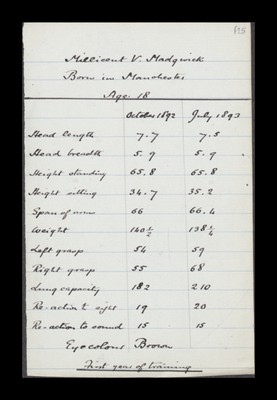 125
Millicent V. Madgwick
Born in Manchester
Age 18
October 1892 July 1893
Head length 7.7 7.5
Head breadth 5.9 5.9
Height standing 65.8 65.8
Height sitting 34.7 35.2
Span of arms 66 66.4
Weight 140½ 138¼
Left grasp 54 59
Right grasp 55 68
Lung capacity 182 210
Re-action to sight 19 20
Re-action to sound 15 15
Eye colour Brown
First year of training